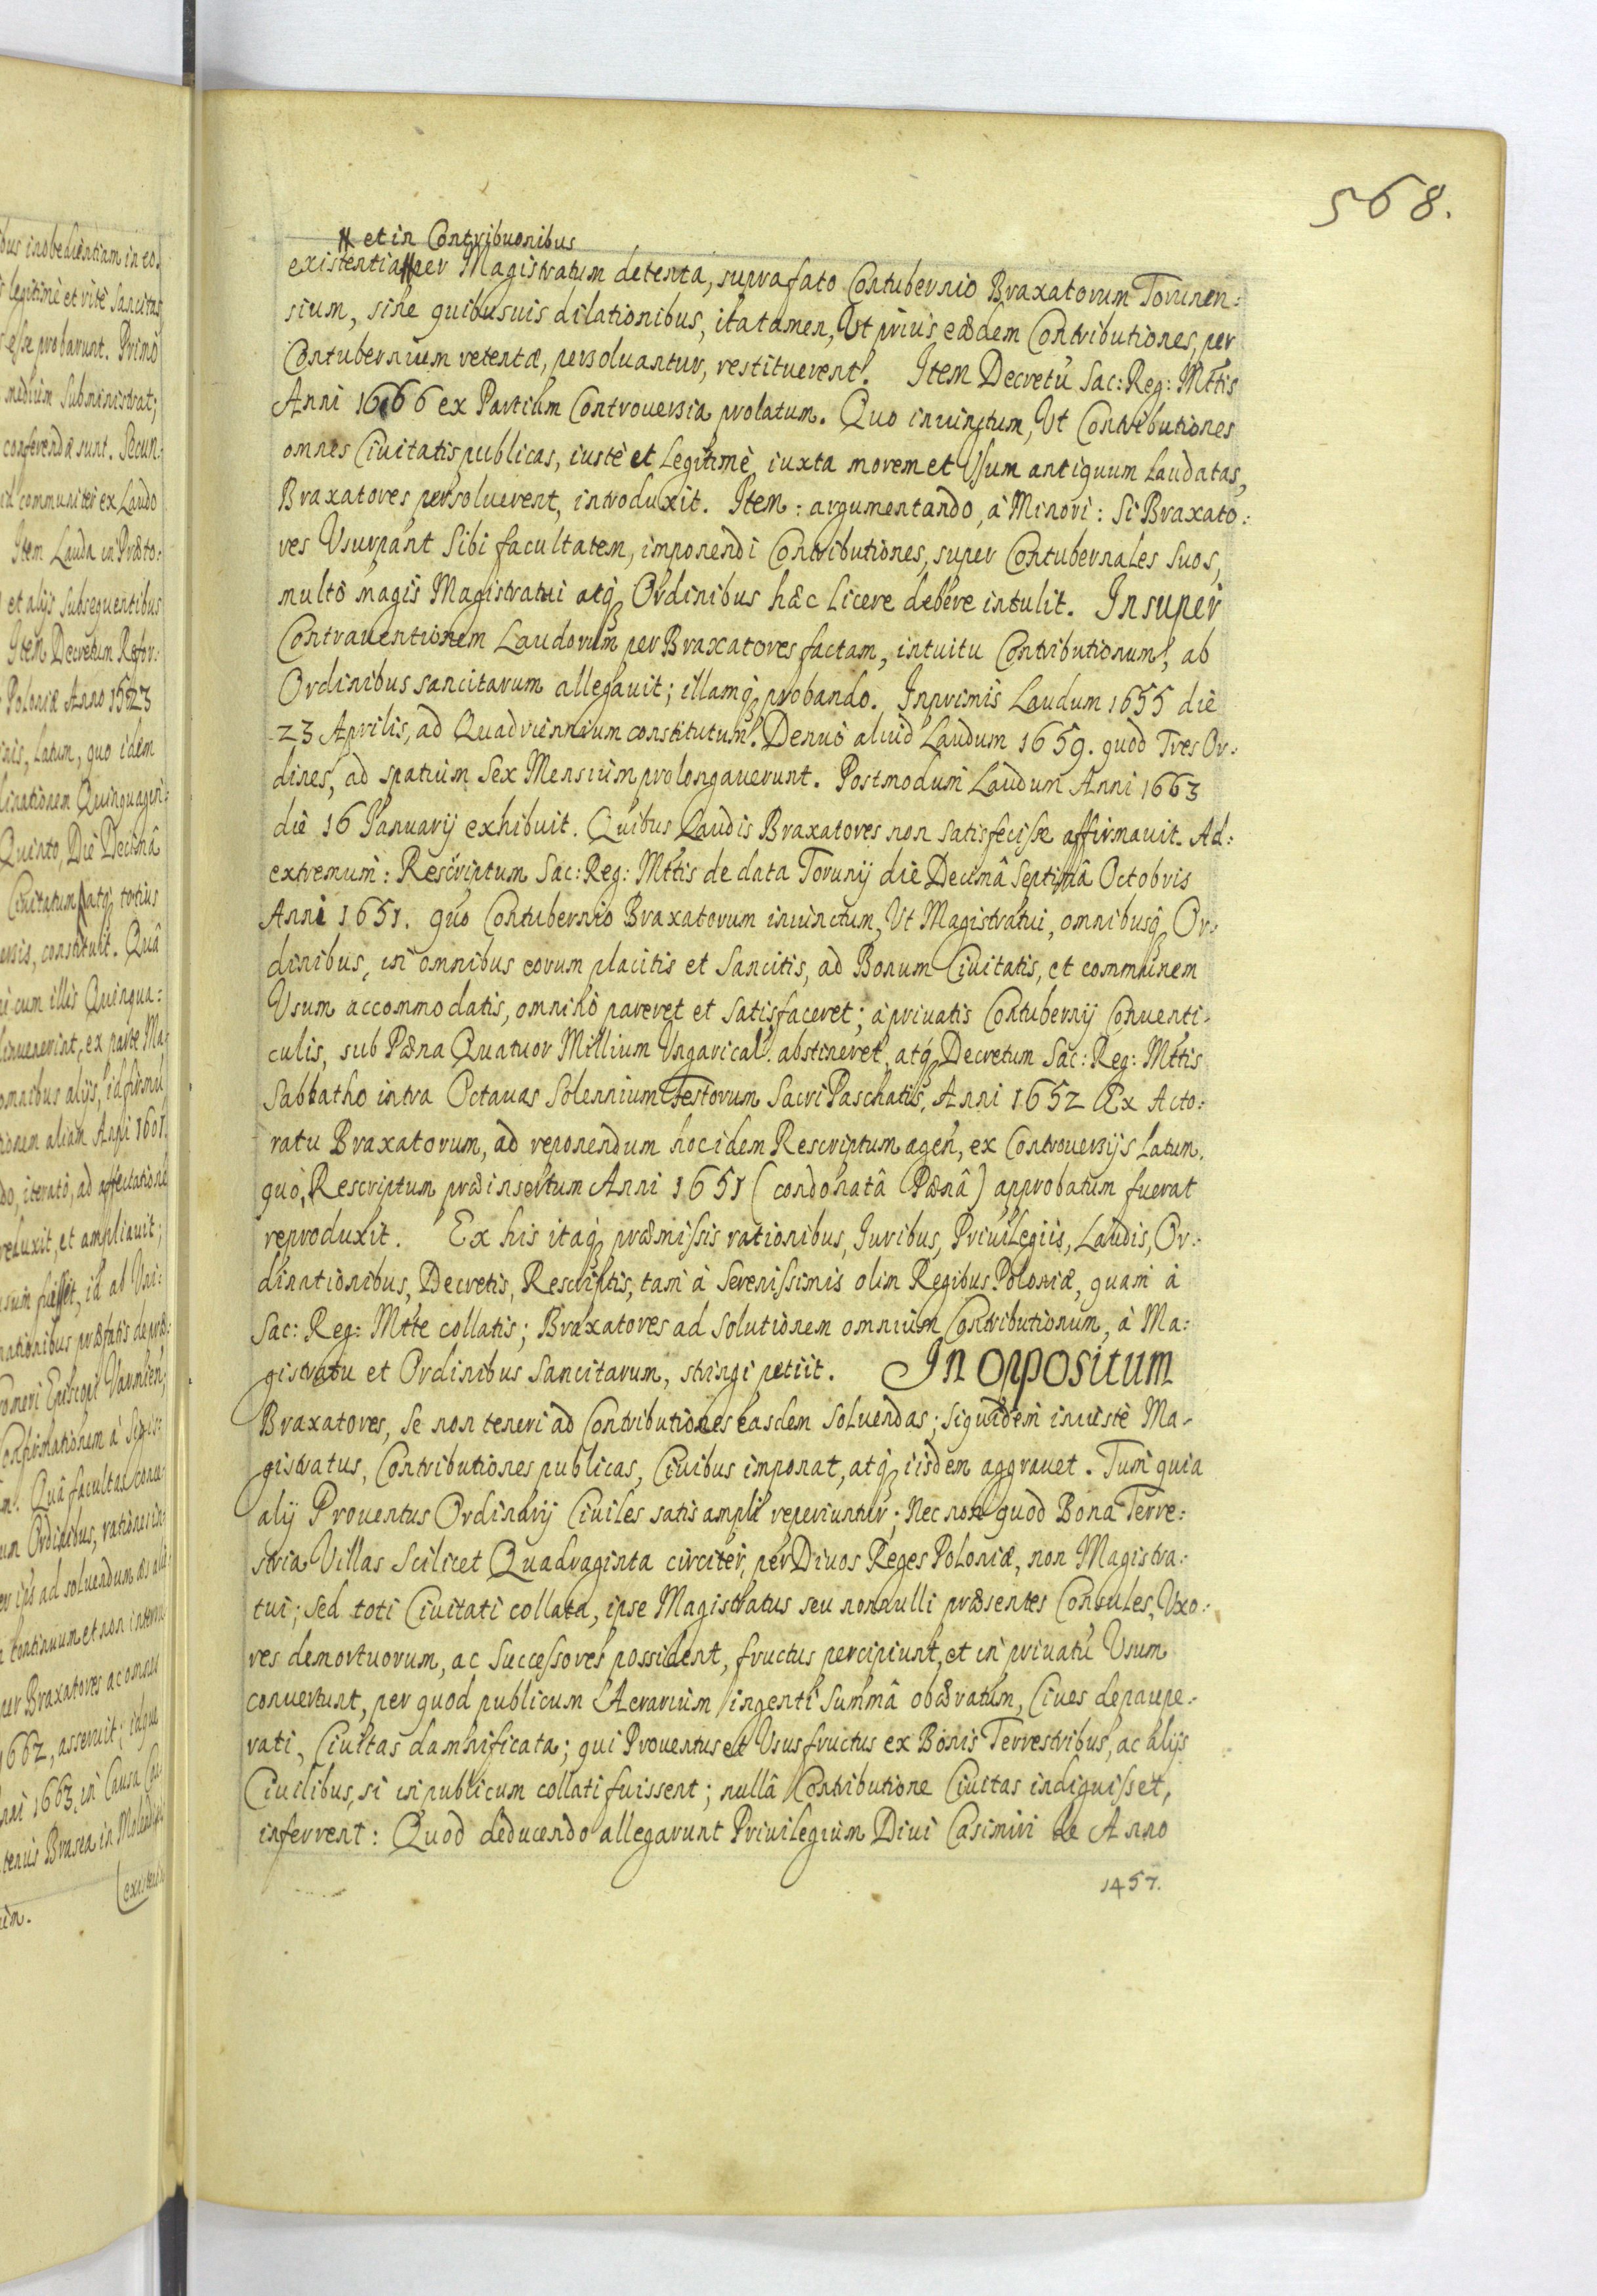 568.
# et in Contribuonibus
existentia # per Magistratum detenta, suprafato Contubernio Braxatorum Torunen:
sium, sine quibusuis dilationibus, itatamen, Vt prius eædem Contributiones, per
Contubernium retentæ, persoluantur, restituerent. Item Decretũ Sac: Reg: Mttis
Anni 1666 ex Partium Controuersia prolatum. Quo iniunctum, Vt Contributiones
omnes Ciuitatis publicas, iustè et Legitimè iuxta morem et Vsum antiquum Laudatas,
Braxatores persoluerent, introduxit. Item: argumentando, à Minori: Si Braxato:
res Vsurpant Sibi facultatem, imponendi Contributiones, super Contubernales Suos,
multò magis Magistratui atq Ordinibus hæc Licere debere intulit. Insuper
Contrauentionem Laudorum per Braxatores factam, intuitu Contributionum, ab
Ordinibus sancitarum allegauit; illamq probando. Inprimis Laudum 1655 die
23 Aprilis, ad Quadriennium constitutum. Denuò aliud Laudum 1659. quod Tres Or:
dines, ad spatium Sex Mensium prolongauerunt. Postmodum Laudum Anni 1663
die 16 Januarij exhibuit. Quibus Laudis Braxatores non satisfecisse affirmauit. Ad:
extremum: Rescriptum Sac: Reg: Mttis de data Torunij die Decimâ Septimâ Octobris
Anni 1651. quo Contubernio Braxatorum iniunctum, Vt Magistratui, omnibusq Or:
dinibus, in omnibus eorum placitis et Sancitis, ad Bonum Ciuitatis, et communem
Vsum accommodatis, omninò pareret et Satisfaceret; à priuatis Contubernij Conuenti-
culis, sub Pæna Quatuor Millium Vngarical: abstineret, atq Decretum Sac: Reg: Mttis
Sabbatho intra Octauas Solennium Festorum Sacri Paschatis, Anni 1652 Ex Acto:
ratu Braxatorum, ad reponendum hoc idem Rescriptum agen, ex Controuersijs Latum,
quò, Rescriptum præinsertum Anni 1651 (condonatâ Pænâ) approbatum fuerat
reproduxit. Ex his itaq præmissis rationibus, Iuribus, Priuilegiis, Laudis, Or:
dinationibus, Decretis, Rescriptis, tam à Serenissimis olim Regibus Poloniæ, quam à
Sac: Reg: Mtte collatis; Braxatores ad Solutionem omnium Contributionum, à Ma:
gistratu et Ordinibus Sancitarum, stringi petiit. In oppositum
Braxatores, Se non teneri ad Contributiones easdem Soluendas; siquidem iniustè Ma-
gistratus, Contributiones publicas, Ciuibus imponat, atq iisdem aggrauet. Tum quia
alij Prouentus Ordinarij Ciuiles satis ampli reperiuntur; Nec non quod Bona Terre:
stria Villas Scilicet Quadraginta circiter, per Diuos Reges Poloniæ, non Magistra:
tui; Sed toti Ciuitati collata, ipse Magistratus seu nonnulli præsentes Consules, Vxo:
res demortuorum, ac Successores possident, fructus percipiunt, et in priuatũ Vsum
conuertunt, per quod publicum Aerarium ingenti Summâ obæratum, Ciues depaupe:
rati, Ciuitas damnificata; qui Prouentus et Vsusfructus ex Bonis Terrestribus, ac alijs
Ciuilibus, si in publicum collati fuissent; nullâ Contributione Ciuitas indiguisset,
inferrent: Quod deducendo allegarunt Priuilegium Diui Casimiri de Anno
1457.